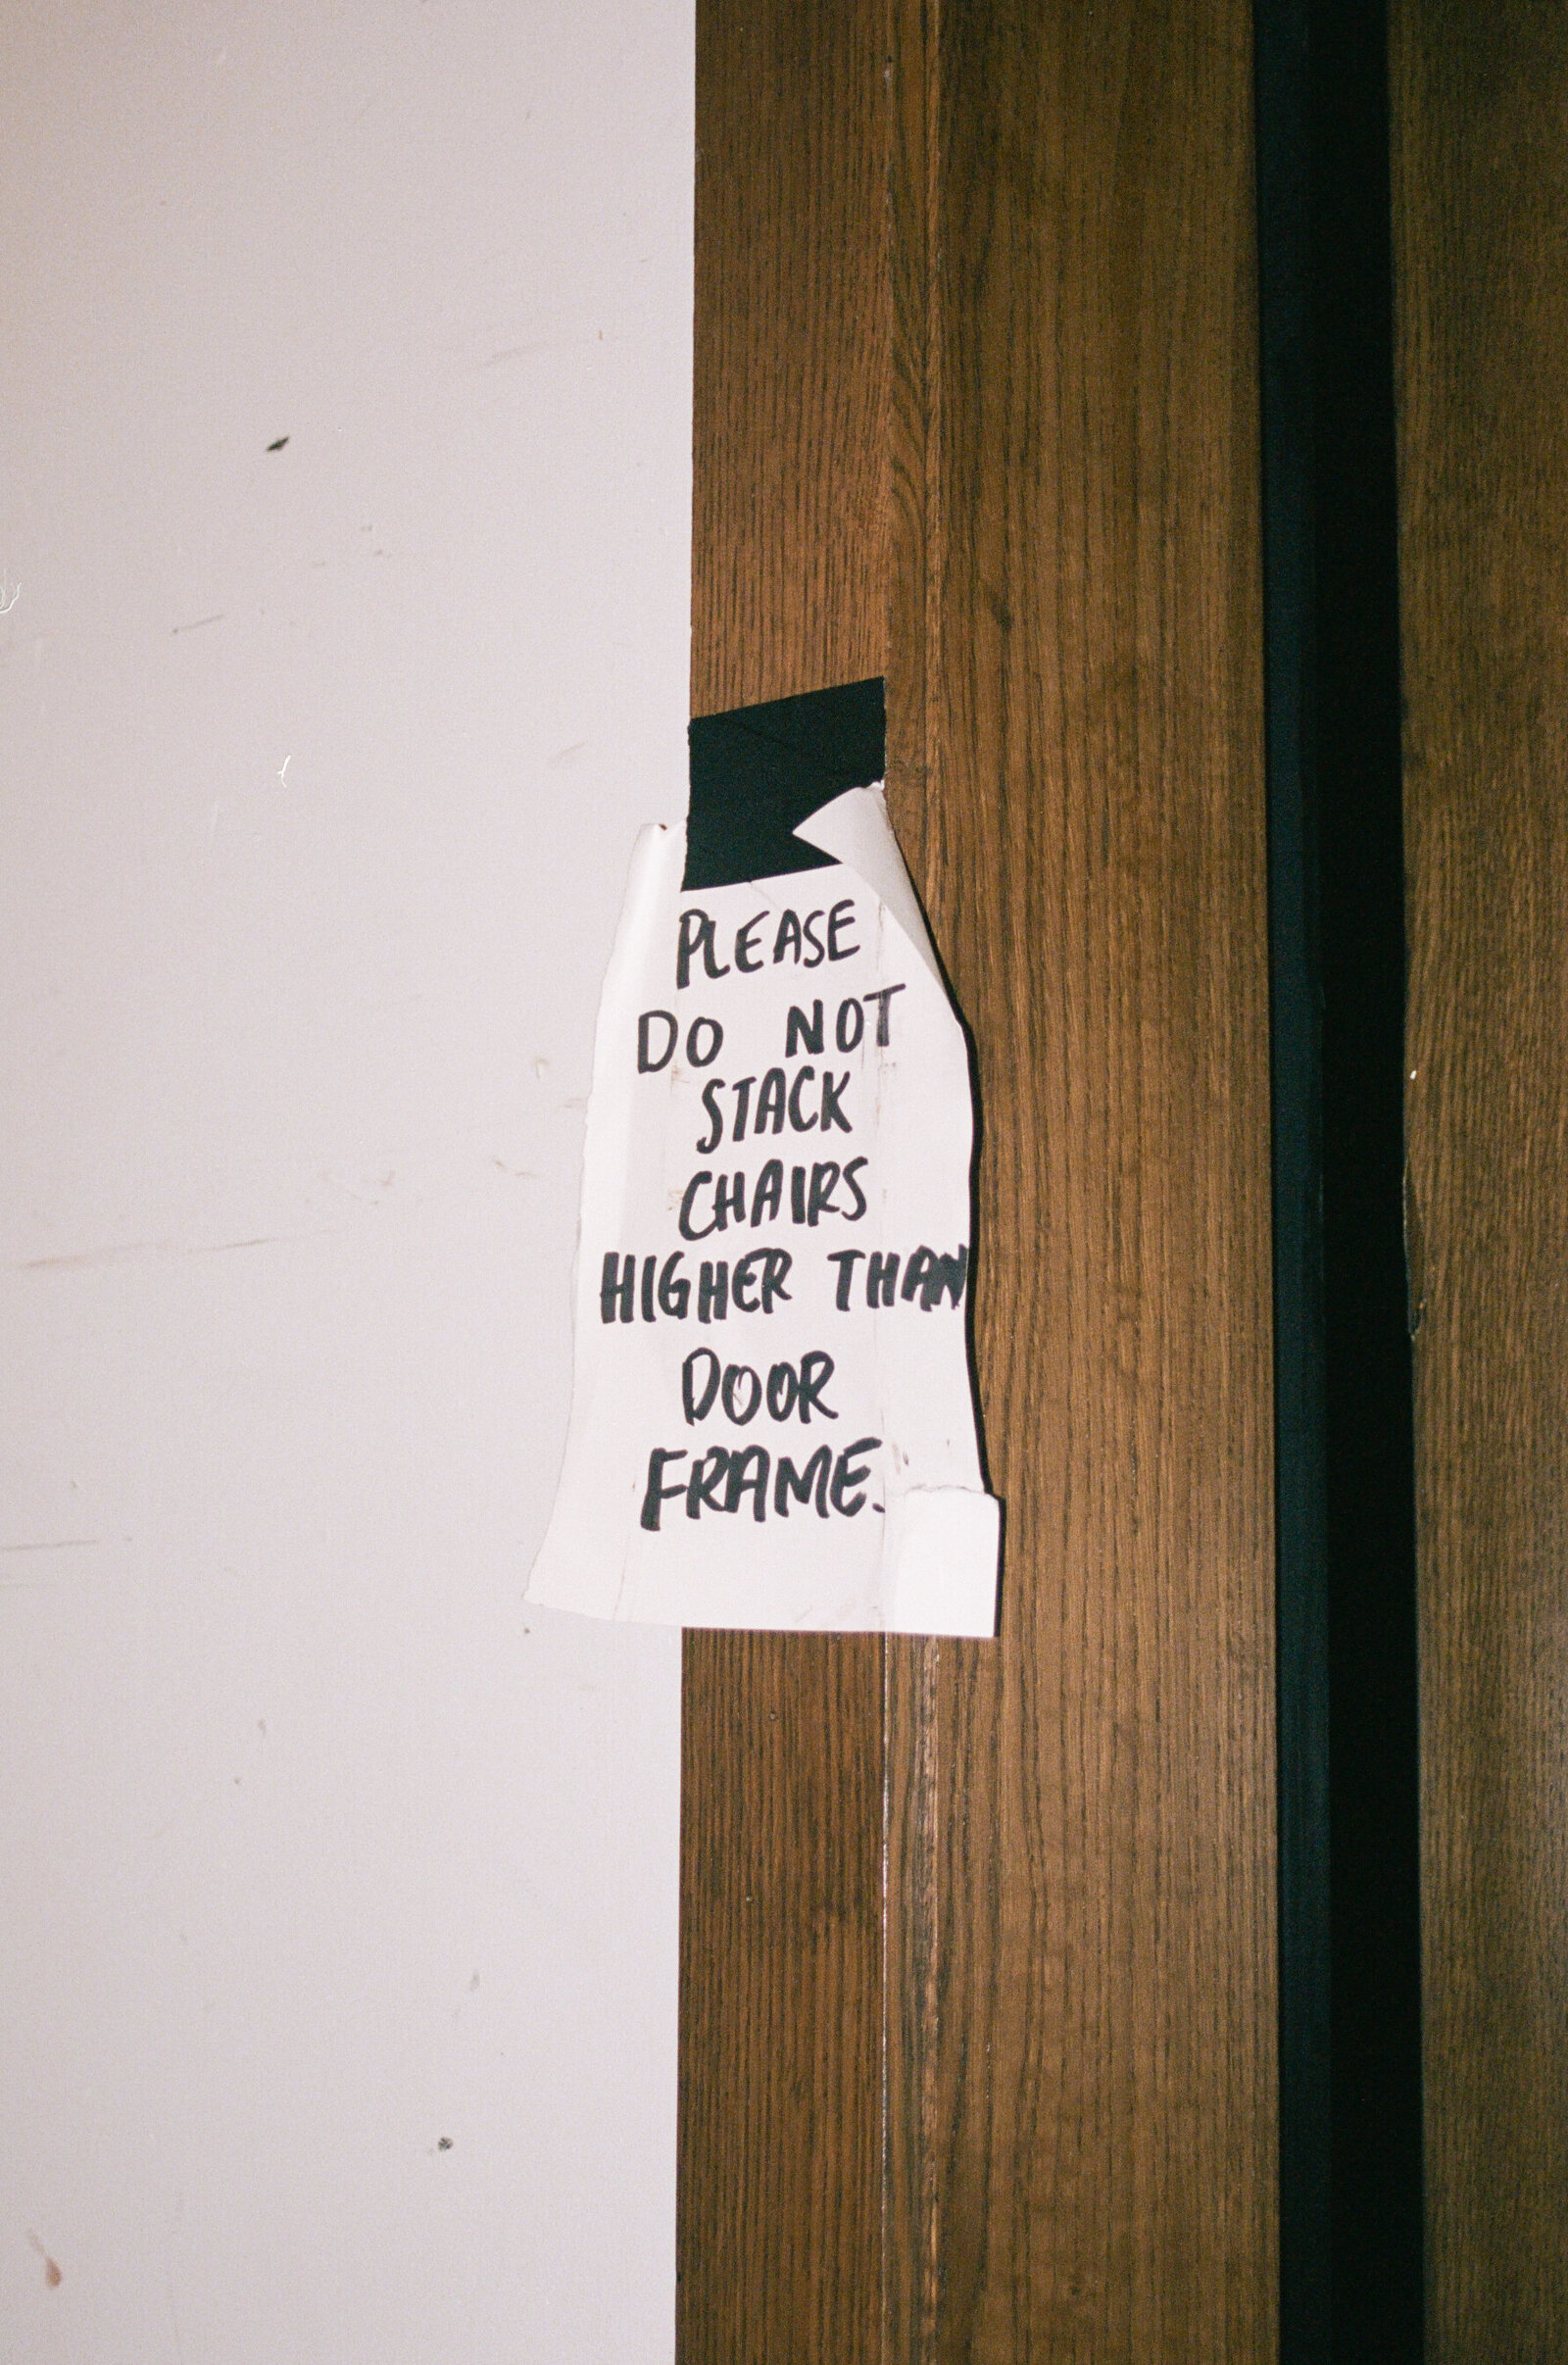 PLEASE
DO NOT
STACK
CHAIRS
HIGHER THAN
DOOR
FRAME.